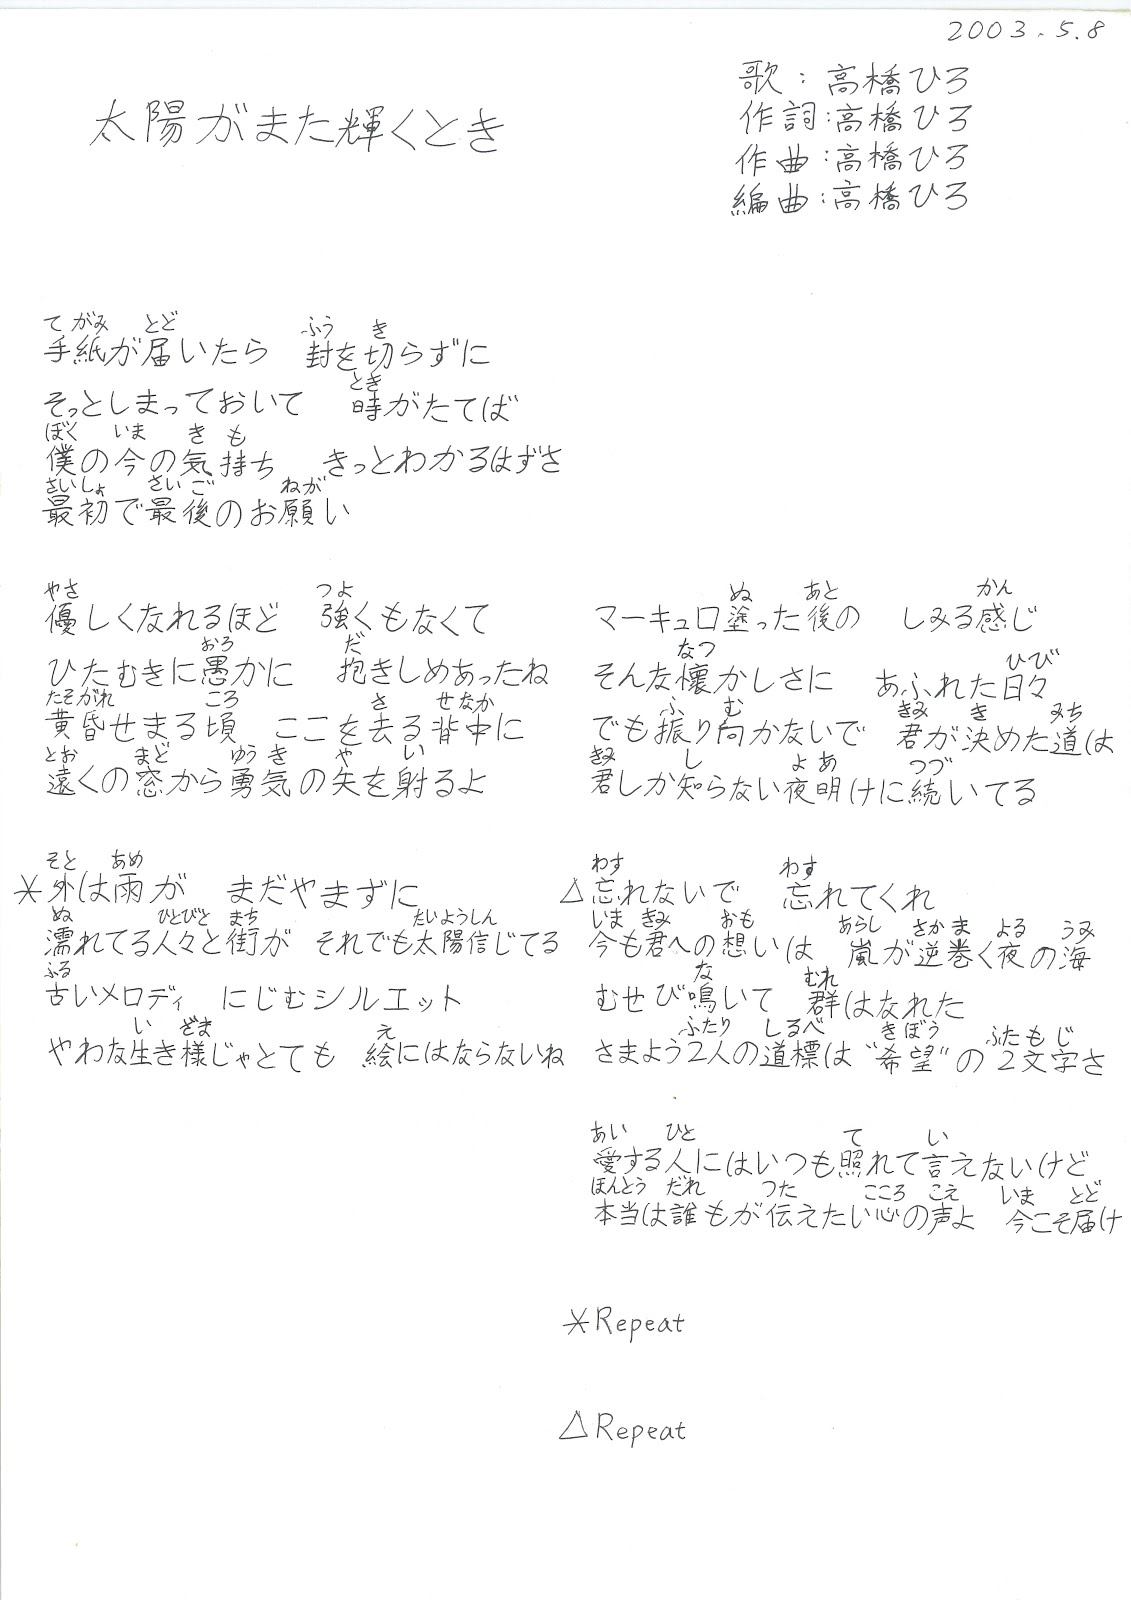 2003.5.8
太陽がまた輝くとき
歌：高橋ひろ
作詞：高橋ひろ
作曲：高橋ひろ
編曲：高橋ひろ
てがみ とど ふう き
手紙が届いたら 封を切らずに
とき
そっとしまっておいて 時がたてば
ぼく いま き も
僕の今の気持ち きっとわかるはずさ
さいしょ さいご ねが
最初で最後のお願い
やさ つよ
優しくなれるほど 強くもなくて
おろ だ
ひたむきに愚かに 抱きしめあったね
たそがれ ころ さ せなか
黄昏せまる頃 ここを去る背中に
とお まど ゆうき や い
遠くの窓から勇気の矢を射るよ
そと あめ
＊外は雨が まだやまずに
ぬ ひとびと まち たいようしん
濡れてる人々と街が それでも太陽信じてる
ふる
古いメロディ にじむシルエット
い ざま え
やわな生き様じゃとても 絵にはならないね
ぬ あと かん
マーキュロ塗った後の しみる感じ
なつ ひび
そんな懐かしさに あふれた日々
ふ む きみ き みち
でも振り向かないで 君が決めた道は
きみ し よ あ つづ
君しか知らない夜明けに続いてる
わす わす
△忘れないで 忘れてくれ
いま きみ おも あらし さかま よる うみ
今も君への想いは 嵐が逆巻く夜の海
な むれ
むせび鳴いて 群はなれた
ふたり しるべ きぼう ふたもじ
さまよう2人の道標は“希望”の2文字さ
あい ひと て い
愛する人にはいつも照れて言えないけど
ほんとう だれ つた こころ こえ いま とど
本当は誰もが伝えたい心の声よ 今こそ届け
＊Repeat
△Repeat